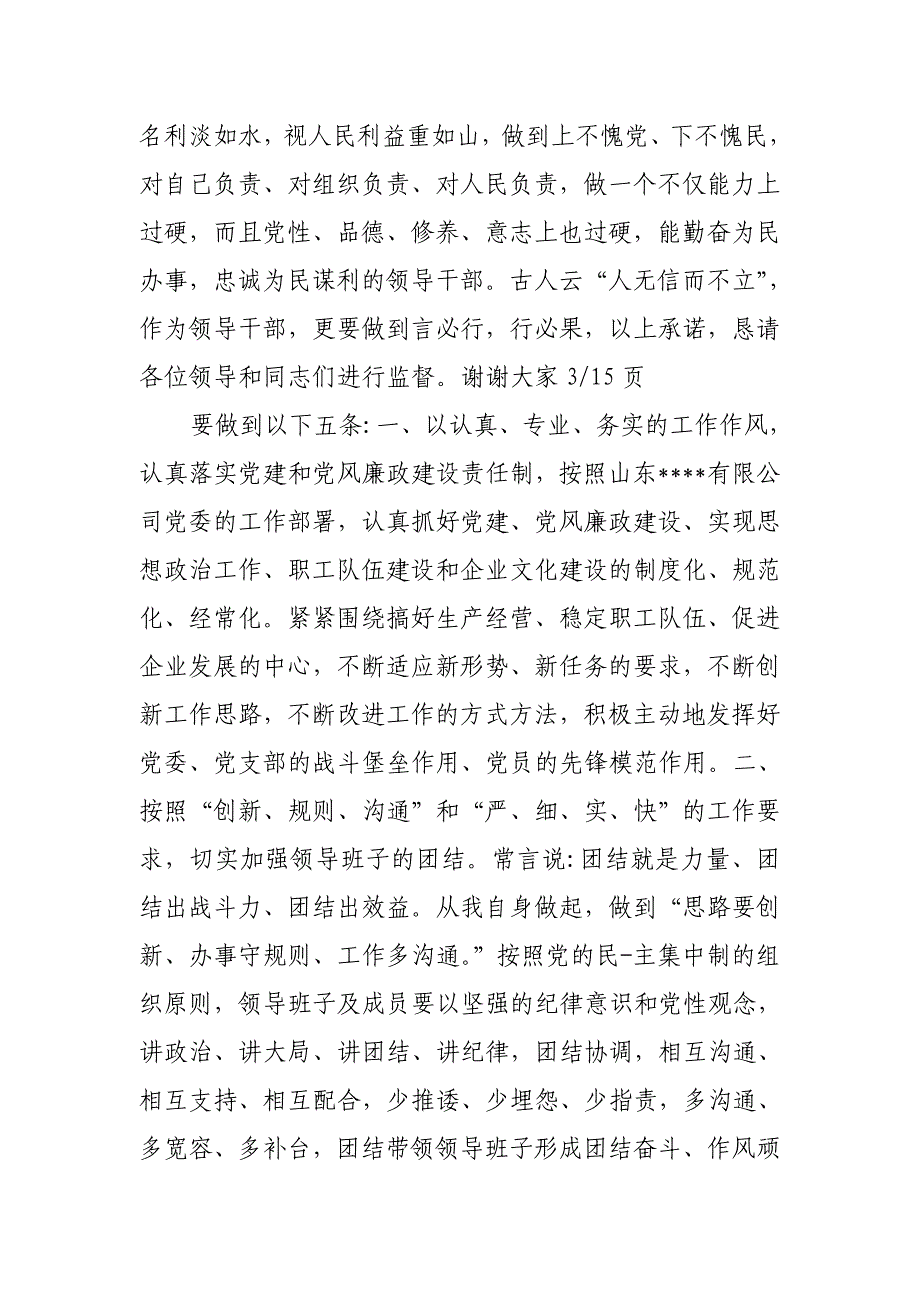 名利淡如水，视人民利益重如山，做到上不愧党、下不愧民，
对自己负责、对组织负责、对人民负责，做一个不仅能力上
过硬，而且党性、品德、修养、意志上也过硬，能勤奋为民
办事，忠诚为民谋利的领导干部。古人云“人无信而不立”，
作为领导干部，更要做到言必行，行必果，以上承诺，恳请
各位领导和同志们进行监督。谢谢大家 3/15 页
要做到以下五条:一、以认真、专业、务实的工作作风，
认真落实党建和党风廉政建设责任制，按照山东****有限公
司党委的工作部署，认真抓好党建、党风廉政建设、实现思
想政治工作、职工队伍建设和企业文化建设的制度化、规范
化、经常化。紧紧围绕搞好生产经营、稳定职工队伍、促进
企业发展的中心，不断适应新形势、新任务的要求，不断创
新工作思路，不断改进工作的方式方法，积极主动地发挥好
党委、党支部的战斗堡垒作用、党员的先锋模范作用。二、
按照“创新、规则、沟通”和“严、细、实、快”的工作要
求，切实加强领导班子的团结。常言说:团结就是力量、团
结出战斗力、团结出效益。从我自身做起，做到“思路要创
新、办事守规则、工作多沟通。”按照党的民-主集中制的组
织原则，领导班子及成员要以坚强的纪律意识和党性观念，
讲政治、讲大局、讲团结、讲纪律，团结协调，相互沟通、
相互支持、相互配合，少推诿、少埋怨、少指责，多沟通、
多宽容、多补台，团结带领领导班子形成团结奋斗、作风顽